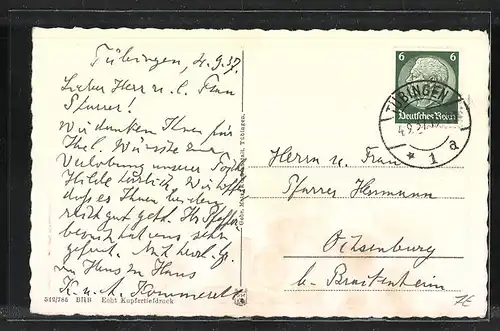 Tübingen, 4.9.37.
Lieber Herr u. l. Frau
Pfarrer!
Wir danken Ihnen für
Ihre l. Wünsche zur
Verlobung unserer Tochter
Hilde herzlich. Wir hoffen
daß es Ihnen beiden
recht gut geht. Ihr
uns sehr
gefreut. Mit herzl. Gr.
von Haus zu Haus
K. u.
512/786 BHB Echt Kupfertiefdruck
Tübingen.
6 6
Deutsches Reich
TÜBINGEN
4.9.37
* 1 a
Herrn u. Frau
Pfarrer Hermann
Ochsenburg
b. Brackenheim